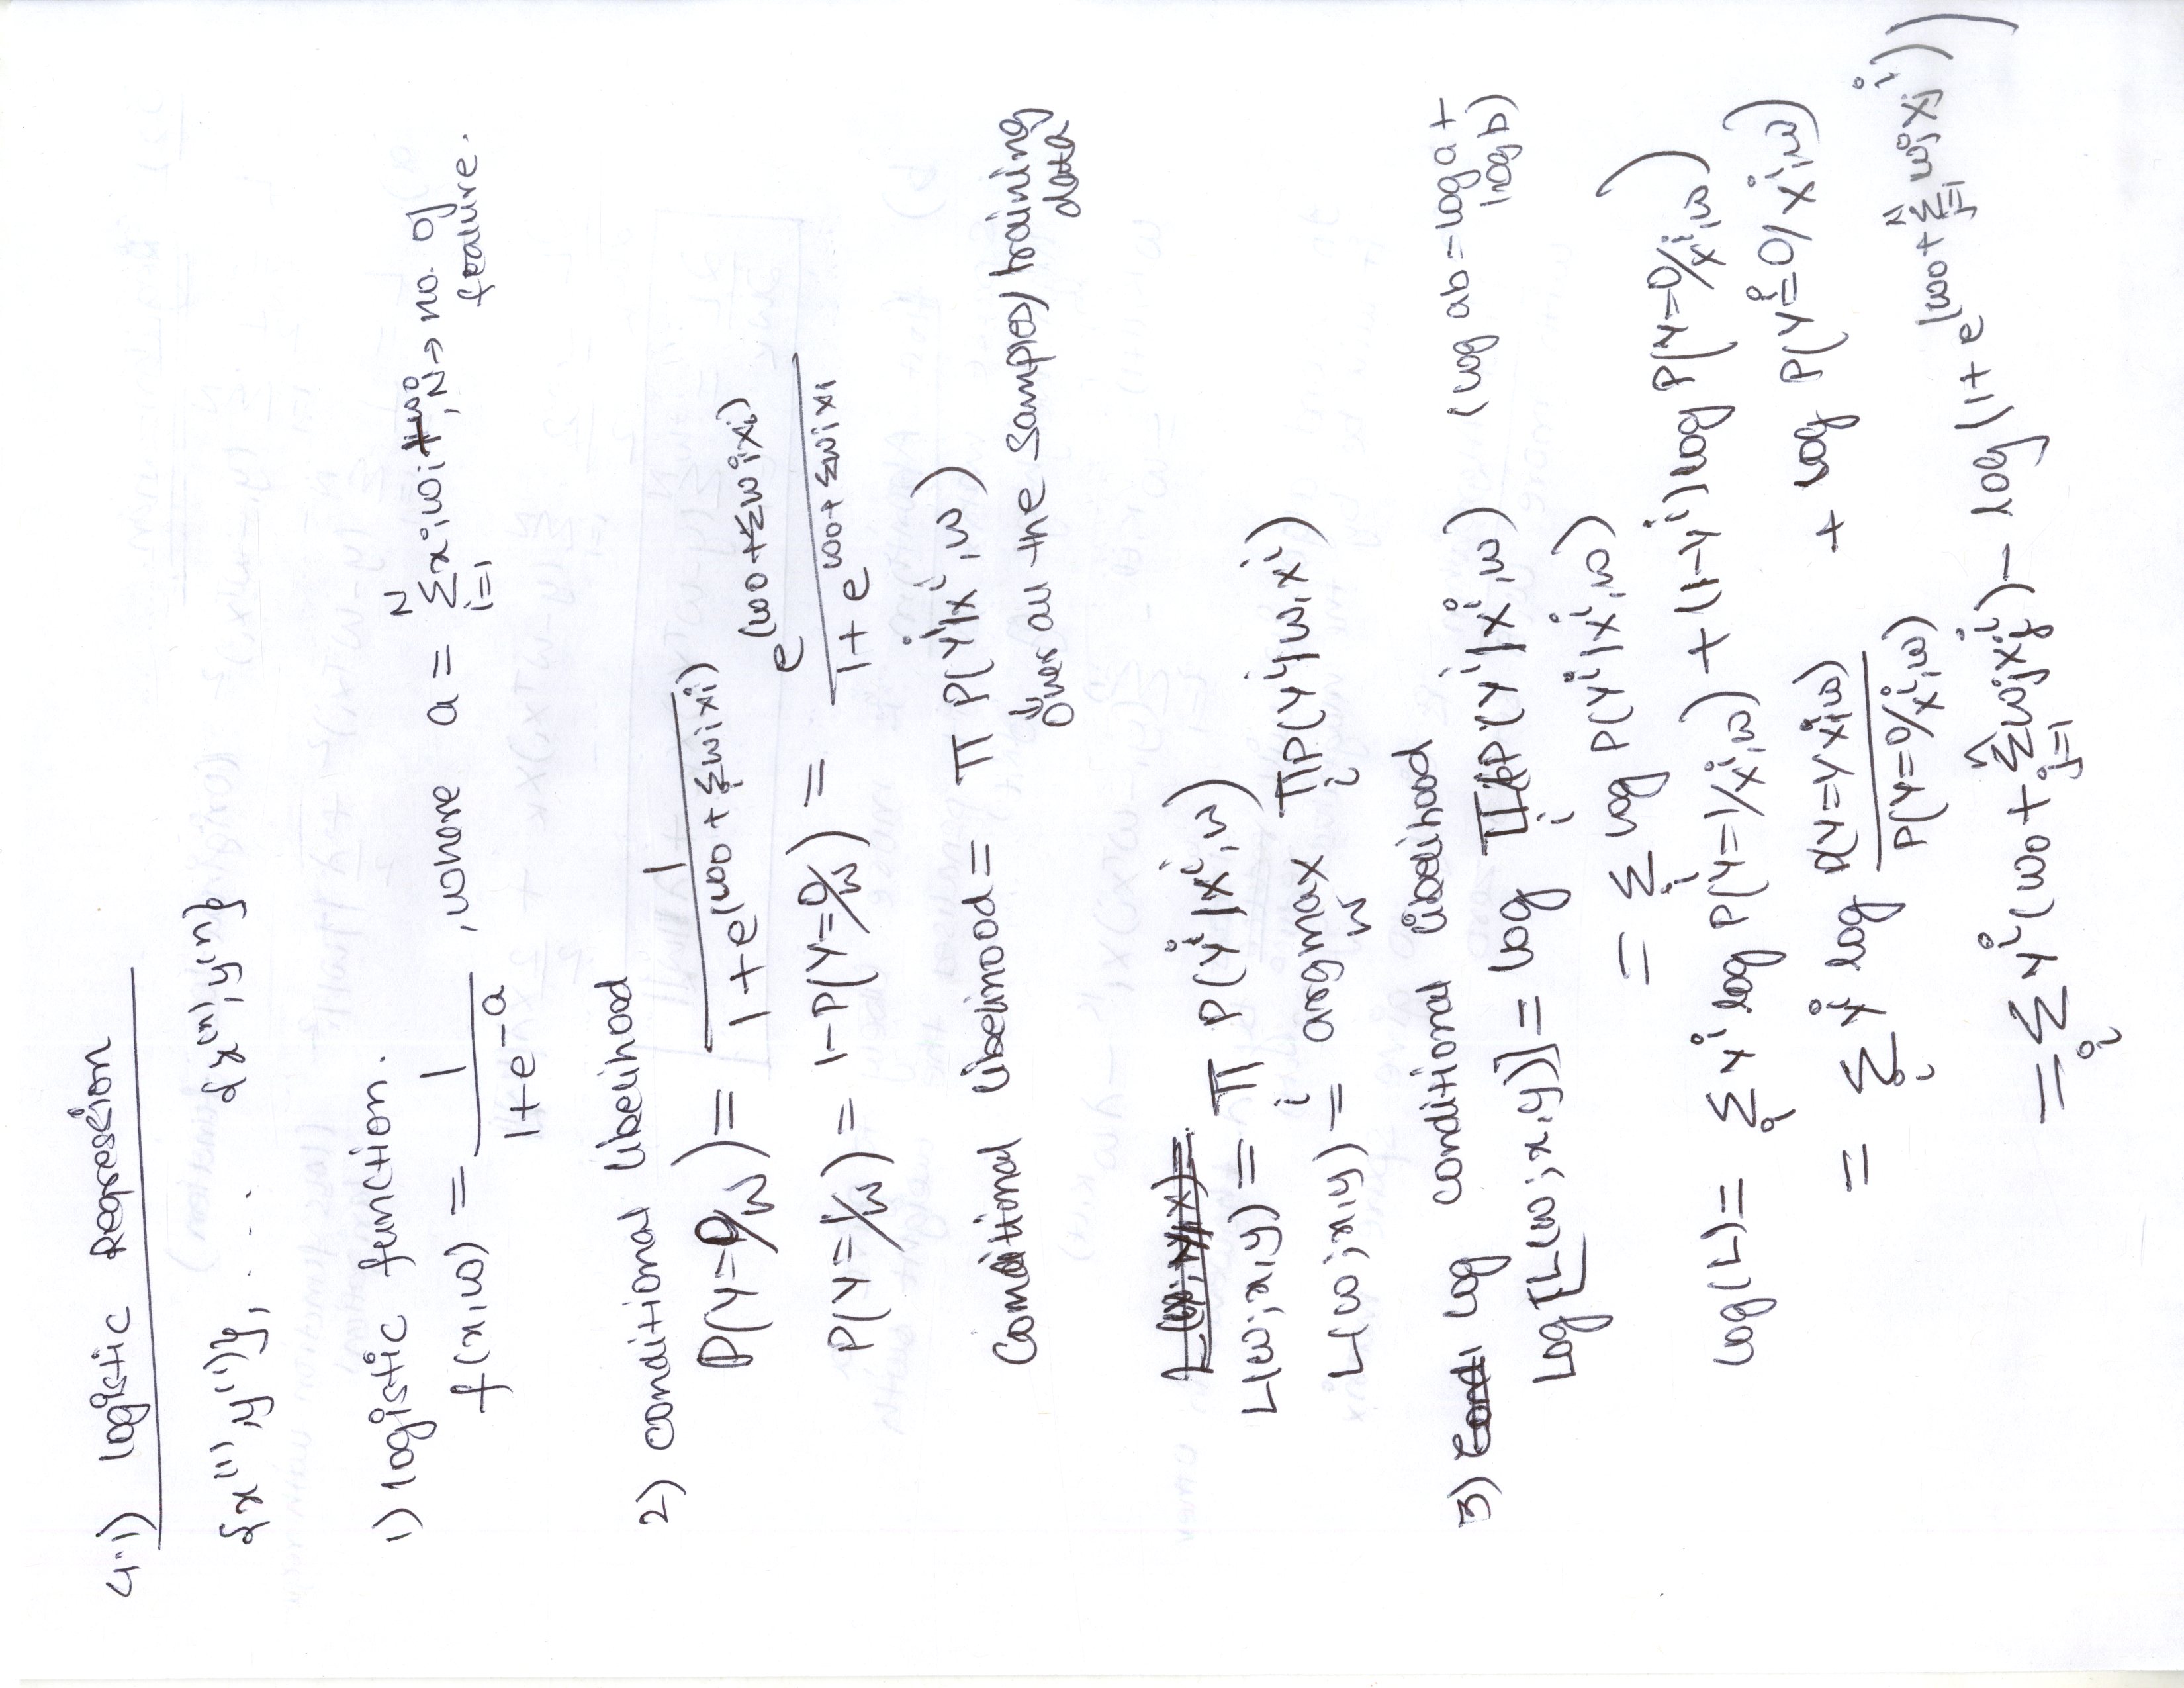 4.1) logistic Regression
{x⁽¹⁾, y⁽¹⁾}, .... {x⁽ⁿ⁾, y⁽ⁿ⁾}
1) logistic function.
f(x,w) = 1 / (1+e^(-a)) , where a = Σ_{i=1}^{N} x_i w_i + w_0, N → no. of feature.
2) conditional likelihood
P(Y=0/w) = 1 / (1+e^(w_0 + Σ w_i x_i))
P(Y=1/w) = 1-P(Y=0/w) = e^(w_0 + Σ w_i x_i) / (1+e^(w_0 + Σ w_i x_i))
Conditional likelihood = π P(Y^i|x^i, w)
over all the samples/training data
L(w; x,y) = π_i P(Y^i|x^i, w)
L(w; x,y) = argmax_w π_i P(Y^i|w, x^i)
3) log conditional likelihood (log ab = log a + log b)
Log[L(w; x,y)] = log π_i P(Y^i|x^i, w)
= Σ_i log P(Y^i|x^i, w)
log(L) = Σ_i Y^i log P(Y=1/x^i, w) + (1-Y^i) log P(Y=0/x^i, w)
= Σ_i Y^i log P(Y=Y x^i, w) / P(Y=0/x^i, w) + log P(Y^i=0/x^i, w)
= Σ_i Y^i (w_0 + Σ_{j=1}^{n} w_j x_j^i) - log (1+e^(w_0 + Σ_{j=1}^{N} w_j x_j^i))